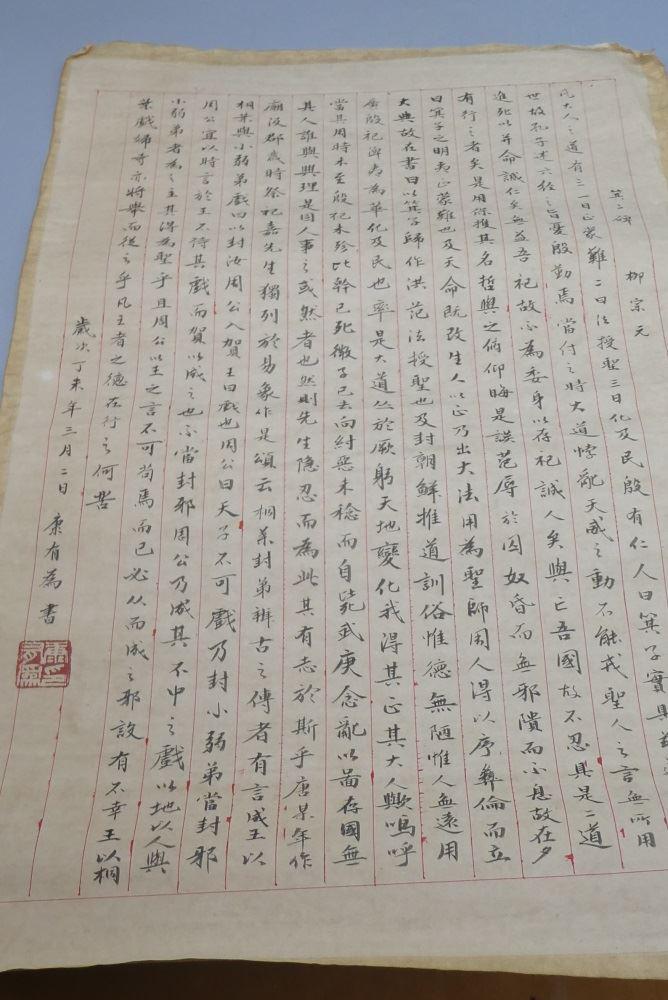 箕子碑 柳宗元
凡大人之道有三一曰正蒙難二曰法授聖三曰化及民殷有仁人曰箕子實具茲
世故孔子述六經之旨憂殷勤焉當付之時大道悖亂天威之動不能戒聖人之言無所用
進死以并命誠仁矣無益吾祀故不為委身以存祀誠人矣與亡吾國故不忍具是二道
有行之者矣是用保推其名哲與之俯仰晦是謨范辱於囚奴昏而無邪隤而不息故在夕
曰箕子之明夷正蒙難也及天命既改生人以正乃出大法用為聖師周人得以序彝倫而立
大典故在書曰以箕子歸作洪范法授聖也及封朝鮮推道訓俗惟德無陋惟人無遠用
廣殷祀俾夷為華化及民也率是大道丛於厥躬天地變化我得其正其大人歟嗚呼
當其周時未至殷祀未殄比幹已死微子已去向紂惡未稔而自斃武庚念亂以圖存國無
其人誰與興理是固人事之或然者也然則先生隱忍而為此其有志於斯乎唐某年作
廟汲郡歲時祭祀嘉先生獨列於易象作是頌云桐葉封弟辨古之傳者有言成王以
桐葉與小弱弟戲曰以封汝周公入賀王曰戲也周公曰天子不可戲乃封小弱弟當封邪
周公宜以時言於王不待其戲而賀以成之也不當封邪周公乃成其不中之戲以地以人與
小弱弟者為之主其得為聖乎且周公以王之言不可苟焉而已必从而成之邪設有不幸王以桐
葉戲婦寺亦將舉而從之乎凡王者之德在行之何若
歲次丁未年三月二日康有為書